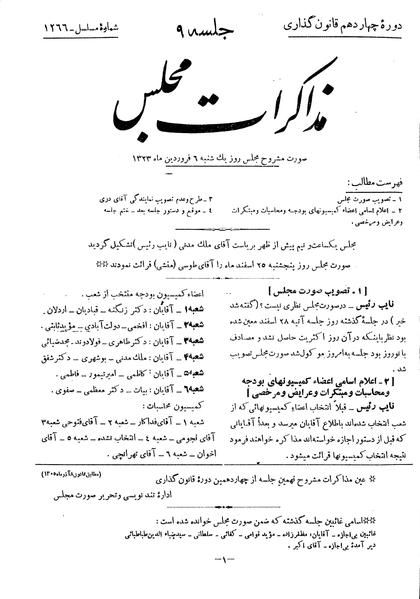 دورهٔ چهاردهم قانون گذاری
جلسه ۹
شمارهٔ مسلسل - ۱۲۶۶
مذاکرات مجلس
صورت مشروح مجلس روز یک شنبه ۶ فروردین ماه ۱۳۲۳
فهرست مطالب:
۱ - تصویب صورت مجلس
۲ - اعلام اسامی اعضاء کمیسیونهای بودجه و محاسبات و مبتکرات
وعرایض ومرخصی.
۳ - طرح وعدم تصویب نمایندگی آقای دزی
۴ - موقع و دستور جلسه بعد - ختم جلسه
مجلس یکساعت و نیم پیش از ظهر بریاست آقای ملک مدنی (نایب رئیس) تشکیل گردید
صورت مجلس روز پنجشنبه ۲۵ اسفند ماه را آقای طوسی (منشی) قرائت نمودند
[ ۱ - تصویب صورت مجلس ]
نایب رئیس - در صورت مجلس نظری نیست؟ (گفته شد
خیر) در جلسه گذشته روز جلسه آتیه ۲۸ اسفند معین شده
بود نظر باینکه در آن روز اکثریت حاصل نشد و مصادف
با نوروز بود جلسه به امروز موکول شد صورت مجلس تصویب
شد.
[ ۲ - اعلام اسامی اعضاء کمیسیونهای بودجه
ومحاسبات و مبتکرات وعرایض ومرخصی ]
نایب رئیس - قبلاً انتخاب اعضاء کمیسیونهائی که از
شعب انتخاب شده‌اند باطلاع آقایان میرسد و بعداً آقایانی
که قبل از دستور اجازه خواسته‌اند مذاکره خواهند فرمود
نتیجه انتخاب کمیسیونها قرائت میشود.
اعضاء کمیسیون بودجه منتخب از شعب.
شعبه ۱ - آقایان: دکتر زنگنه - قبادیان - اردلان.
شعبه ۲ - آقایان: افخمی - دولت آبادی - مؤید ثابتی.
شعبه ۳ - آقایان: طاهری - فولادوند - مجد ضیائی
شعبه ۴ - آقایان: ملک مدنی - بوشهری - دکتر شفق
شعبه ۵ - آقایان: کاظمی - امیر تیمور - فاطمی.
شعبه ۶ - آقایان: بیات - دکتر معظمی - صفوی.
کمیسیون محاسبات:
شعبه ۱ - آقای فداکار - شعبه ۲ - آقای فتوحی شعبه ۳
آقای نجومی - شعبه ۴ - انتخاب نشده - شعبه ۵ - آقای
اخوان - شعبه ۶ - آقای تهرانچی.
عین مذاکرات مشروح نهمین جلسه از چهاردهمین دورهٔ قانون گذاری
(مطابق قانون ۸ آذر ماه ۱۳۰۵)
ادارهٔ تند نویسی و تحریر صورت مجلس
اسامی غائبین جلسه گذشته که ضمن صورت مجلس خوانده شده است:
غائبین بی‌اجازه - آقایان: مظفرزاده - مؤید قوامی - کفائی - سلطانی - سید ضیاء الدین طباطبائی
دیر آمدهٔ بی‌اجازه - آقای اکبر.
-۱-